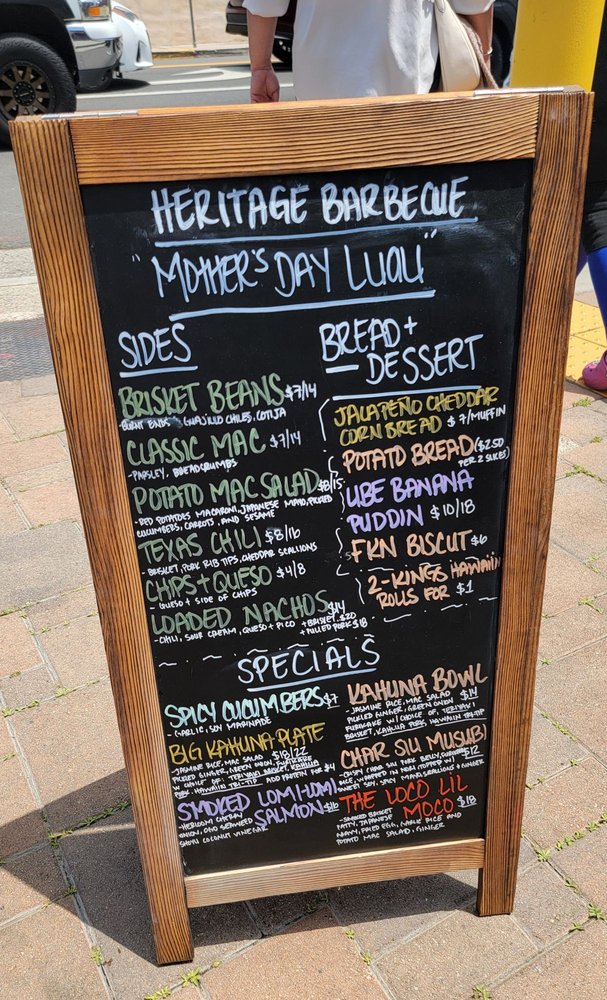 HERITAGE BARBECUE
"MOTHER'S DAY LUAU"
SIDES
BRISKET BEANS $7/14
BURNT ENDS, GUAJILLO CHILES, COTIJA
CLASSIC MAC $7/14
-PARSLEY, BREADCRUMBS
POTATO MAC SALAD $8/15
-RED POTATOES, MACARONI, JAPANESE MAYO, PICKLED
CUCUMBERS, CARROTS, AND SESAME
TEXAS CHILI $8/16
-BRISKET, PORK RIB TIPS, CHEDDAR, SCALLIONS
CHIPS + QUESO $4/8
-QUESO + SIDE OF CHIPS
LOADED NACHOS $14
-CHILI, SOUR CREAM, QUESO + PICO +BRISKET $20
+PULLED PORK $18
BREAD +
DESSERT
JALAPEÑO CHEDDAR
CORN BREAD $7/MUFFIN
POTATO BREAD ($2.50
PER 2 SLICES)
UBE BANANA
PUDDIN $10/18
FKN BISCUT $6
2-KINGS HAWAIIN
ROLLS FOR $1
SPECIALS
SPICY CUCUMBERS $7
-GARLIC, SOY MARINADE
BIG KAHUNA PLATE
-JASMINE RICE, MAC SALAD $18/22
PICKLED GINGER, GREEN ONION, FURIKAKE
W/ CHOICE OF: TERIYAKI BRISKET, KAHLUA
PORK, HAWAIIN TRI-TIP ADD PROTEIN FOR $4
SMOKED LOMI-LOMI
SALMON $16
-HEIRLOOM CHERRY
ONION, OGO SEAWEED
COCONUT VINEGAR
KAHUNA BOWL
-JASMINE RICE, MAC SALAD $14
PICKLED GINGER, GREEN ONION
FURIKAKE W/ CHOICE OF, TERIYAKI
BRISKET, KAHLUA PORK, HAWAIIN TRI-TIP
CHAR SIU MUSUBI
$12
-CRISPY CHAR SIU PORK BELLY, FURIKAKE
RICE, WRAPPED IN NORI TOPPED W/
SWEET SOY, SPICY MAYO, SCALLIONS + GINGER
THE LOCO LIL
MOCO $18
-SMOKED BRISKET
PATTY, JAPANESE
GRAVY, FRIED EGG, GARLIC RICE AND
POTATO MAC SALAD, GINGER